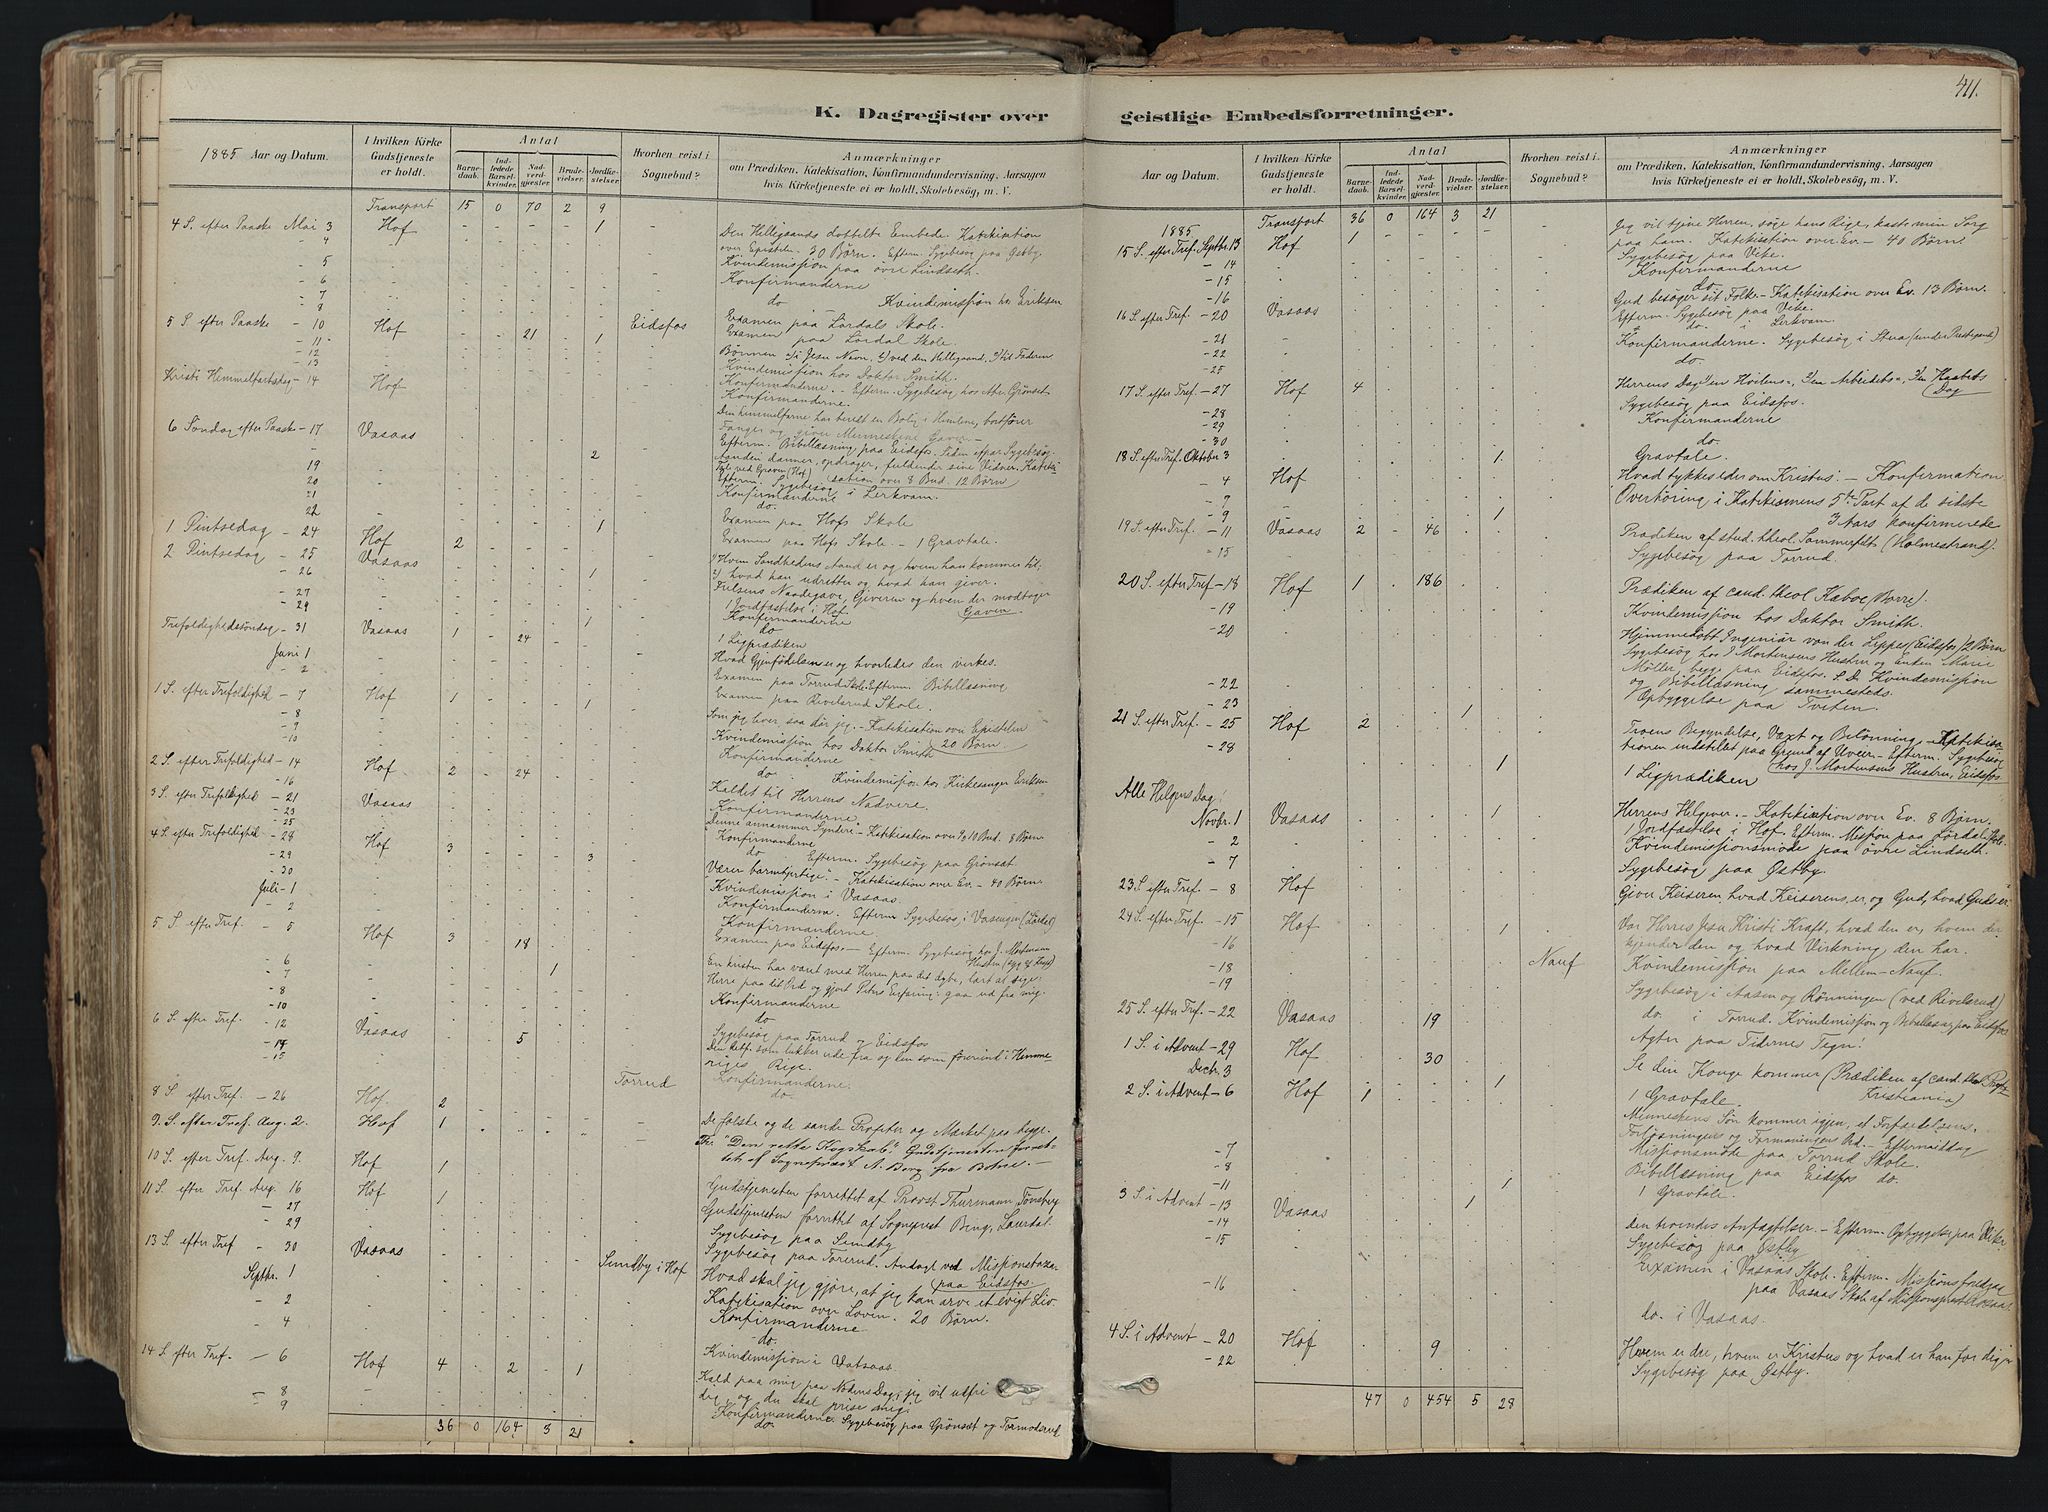 411.
K. Dagregister over geistlige Embedsforretninger.
1885 Aar og Datum.
I hvilken Kirke Gudstjeneste er holdt.
Antal
Barnedaab.
Indledede Barselkvinder.
Nadverdgjester.
Brudevielser.
Jordfæstelser.
Hvorhen reist i Sognebud?
Anmærkninger
om Prædiken, Katekisation, Konfirmandundervisning, Aarsagen
hvis Kirketjeneste ei er holdt, Skolebesøg, m. V.
Transport 15 0 70 2 9
4 S. efter Paaske Mai 3 Hof 1 Den Helligaands dobbelte Embede. Katekisation
- 4 over Epistelen. 30 Børn. Efterm. Sygebesøg paa Østby.
- 5 Kvindemission paa øvre Lindseth.
- 6 Konfirmanderne
- 7 do Kvindemission hos Eriksen
- 8 Examen paa Lørdals Skole.
5 S. efter Paaske - 10 Hof 21 1 Eidsfos Examen paa Lørdal Skole.
- 11 Bønnen 1/ i Jesu Navn, 2/ ved den Helligaand, 3/ til Faderen
- 12 Kvindemission hos Doktor Smith.
- 13 Konfirmanderne. - Efterm. Sygebesøg hos Abr. Grønset
Kristi Himmelfartsdag - 14 Hof Konfirmanderne.
Den himmelfarne har beredt en Bolig i Himlene, bortfører
6 Søndag efter Paaske - 17 Vasaas Fanger og giver Menneskene Gaver -
2 Efterm. Bibellæsning paa Eidsfos. Siden Sygebesøg.
19 Aanden danner, opdrager, fuldender sine Vidner. Kateki-
20 Tale ved Graven (Hof) sation over 8 Bud. 12 Børn
21 Efterm. Sygebesøg i Lerkvam.
22 Konfirmanderne
do.
1 Pintsedag - 24 Hof 2 1 Examen paa Hofs Skole
2 Pintsedag - 25 Vasaas Examen paa Hofs Skole - 1 Gravtale.
- 26 1 1) Hvem Sandhedens Aand er og hvem han kommer til;
- 27 2) hvad han udretter og hvad han giver.
- 29 1 Frelsens Naadegave, Giveren og hvem der modtager Gaven
1 Jordfæstelse i Hof.
Trefoldighedssøndag - 31 Vasaas 1 24 Konfirmanderne
Juni 1 do
- 2 1 Ligprædiken
Hvad Gjenfødelsen er og hvorledes den virkes.
1 S. efter Trefoldighed - 7 Hof 1 Examen paa Torrud Skole. Efterm. Bibellæsning
- 8 1 Examen paa Rivelsrud Skole.
- 9 Som jeg lever, saa dør jeg. - Katekisation over Epistelen
- 10 Kvindemission hos Doktor Smith 20 Børn.
2 S. efter Trefoldighed - 14 Hof 2 24 Konfirmanderne
- 16 do. Kvindemission hos Kirkesanger Eriksen
3 S. efter Trefoldighed - 21 Vasaas Kaldet til Herrens Nadvere.
- 23 Konfirmanderne
- 25 "Denne annammer Syndere" - Katekisation over 9, 10 Bud. 8 Børn
4 S. efter Trefoldighed - 28 Hof 3 Konfirmanderne
- 29 3 do Efterm. Sygebesøg paa Grønsæt
- 30 "Værer barmhjertige". - Katekisation over Ev. - 40 Børn.
Juli - 1 Kvindemission i Vasaas.
- 2 Konfirmanderne. Efterm Sygebesøg i Vasengen (Lørdal)
5 S. efter Tref. - 5 Hof 3 18 Konfirmanderne.
- 6 Examen paa Eidsfos. - Efterm. Sygebesøg hos J. Mortensens Hustru
- 7 1 En kristen har været med Herren paa det dybe, lært at sige:
- 8 Herre paa dit Ord og gjort Peters Erfaring: gaa ud fra mig.
- 10 Konfirmanderne
6 S. efter Tref - 12 Vasaas 5 do
- 14 Sygebesøg paa Torrud og Eidsfos
- 15 Den Retf. som lukker ude fra og den som fører ind i Himme-
riges Rige.
Torrud Konfirmanderne.
8 S. efter Tref. - 26 Hof. 2 do.
9. S. efter Tref. Aug. 2. Hof 1 De falske og de sande Profeter og Mærket paa begge.
10 S. efter Tref. Aug. 9. Hof 1 "Den rette Klogskab". Gudstjenesten forret-
tet af Sognepræst A. Berg fra Botne. -
11 S. efter Tref. Aug. 16 Hof 1 Gudstjenesten forrettet af Provst Thurmann Tønsberg
- 27 Gudstjenesten forrettet af Sogneprest Bing, Laurdal.
- 29 Sygebesøg paa Sundby
13 S. efter Tref - 30 Vasaas Sundby i Hof Sygebesøg paa Torrud. Andagt ved Missionsbazar
Septbr. 1 Hvad skal jeg gjøre, at jeg kan arve et evigt Liv. paa Eidsfos.
- 2 Katekisation over Loven. 20 Børn.
- 4 Konfirmanderne
do.
14 S. efter Tref. - 6 Hof 4 2 1 Kvindemission i Vasaas.
- 8 Kald paa mig paa Nødens Dag; jeg vil udfri
- 9 dig, og du skal prise mig.
Konfirmanderne. Sygebesøg paa Grønsæt og Tormodsrud
36 0 164 3 21 do.
Aar og Datum.
I hvilken Kirke Gudstjeneste er holdt.
Antal
Barnedaab.
Indledede Barselkvinder.
Nadverdgjester.
Brudevielser.
Jordfæstelser.
Hvorhen reist i Sognebud?
Anmærkninger
om Prædiken, Katekisation, Konfirmandundervisning, Aarsagen
hvis Kirketjeneste ei er holdt, Skolebesøg, m. V.
1885 Transport 36 0 164 3 21 Jeg vil tjene Herren, søge hans Rige, kaste min Sorg
15 S. efter Tref. Septbr. 13 Hof 1 paa ham. Katekisation over Ev. - 40 Børn.
- 14 Sygebesøg paa Vike.
- 15 Konfirmanderne
- 16 do.
16 S. efter Tref. - 20 Vasaas Gud besøger sit Folk. - Katekisation over Ev. 13 Børn.
Efterm. Sygebesøg paa Vike.
- 21 do. i Lerkvam.
- 22 Konfirmanderne. Sygebesøg i Stua (under Prestegaard)
- 25 do.
17 S. efter Tref. - 27 Hof 4 Herrens Dag 1/ en Hvilens-, 2/ en Arbeidets-, 3/ en Haabets Dag
- 28 Sygebesøg paa Eidsfos.
- 29 Konfirmanderne
- 30 do.
18 S. efter Tref. Oktober 3 1 Gravtale.
- 4 Hof Hvad tykkes eder om Kristus? - Konfirmation
- 7 Overhøring i Katekismens 5te Part af de sidste
- 9 1 3 Aars konfirmerede
19 S. efter Tref. - 11 Vasaas 2 46 Prædiken af stud. theol. Sommerfelt (Holmestrand).
- 15 Sygebesøg paa Torrud.
20 S. efter Tref - 18 Hof 1 186 Prædiken af cand. theol Kaboe (Borre).
- 19 Kvindemission hos Doktor Smith.
- 20 Hjemmedøbt Ingeniør von der Lippes (Eidsfos) 2 Børn
Sygebesøg hos J Mortensens Hustru og Enken Marie
- 22 Møller, begge paa Eidsfos. S. D. Kvindemission
- 23 og Bibellæsning sammesteds.
1 Opbyggelse paa Tviten.
21 S. efter Tref. - 25 Hof 2 Troens Begyndelse, Væxt og Belønning. - Katekisa-
- 28 tionen indstillet paa Grund af Uveir - Efterm. Sygebesøg
1 1 Ligprædiken hos J. Mortensens Hustru, Eidsfos
Alle Helgens Dag:
Novbr. 1 Vasaas 1 Herrens Helgener. - Katekisation over Ev. 8 Børn.
- 2 1 Jordfæstelse i Hof. Efterm. Mission paa Lørdal Skole.
- 7 Kvindemissionsmøde paa øvre Lindseth.
Sygebesøg paa Østby.
23 S. efter Tref - 8 Hof Giver Keiseren, hvad Keiserens er, og Gud, hvad Guds er"
24 S. efter Tref - 15 Hof 1 Vor Herres Jesu Kristi Kraft, hvad den er, hvem der
- 16 kjender den og hvad Virkning den har.
- 18 Nauf Kvindemission paa Mellem-Nauf.
- 19 Sygebesøg i Aasen og Rønningen (ved Rivelsrud)
25 S. efter Tref. - 22 Vasaas 19 do. i Torrud. Kvindemission og Bibellæsning paa Eidsfos
Agter paa Tidernes Tegn!
1 S. i Advent - 29 Hof 30 Se din Konge kommer (Prædiken af cand. theol
Decbr. 3 1 Kristiania)
2 S. i Advent - 6 Hof 1 1 Gravtale.
Menneskens Søn kommer igjen, et Forfærdelsens-,
- 7 Forløsningens og Formaningens Ord. - Eftermiddag
- 8 Missionsmøde paa Torrud Skole.
- 11 1 Bibellæsning paa Eidsfos do.
3 S. i Advent - 13 Vasaas 1 1 Gravtale.
- 14 den troendes Anfægtelser. - Efterm. Opbyggelse paa Vike.
- 15 Sygebesøg paa Østby
Examen i Vasaas Skole. Efterm. Missionsforedrag
- 16 paa Vasaas Skole af Missionsprest
do. i Vasaas.
4 S. i Advent - 20 Hof 9 Hvem er du, hvem er Kristus og hvad er han for dig?
- 22 Sygebesøg paa Østby.
47 0 454 5 28